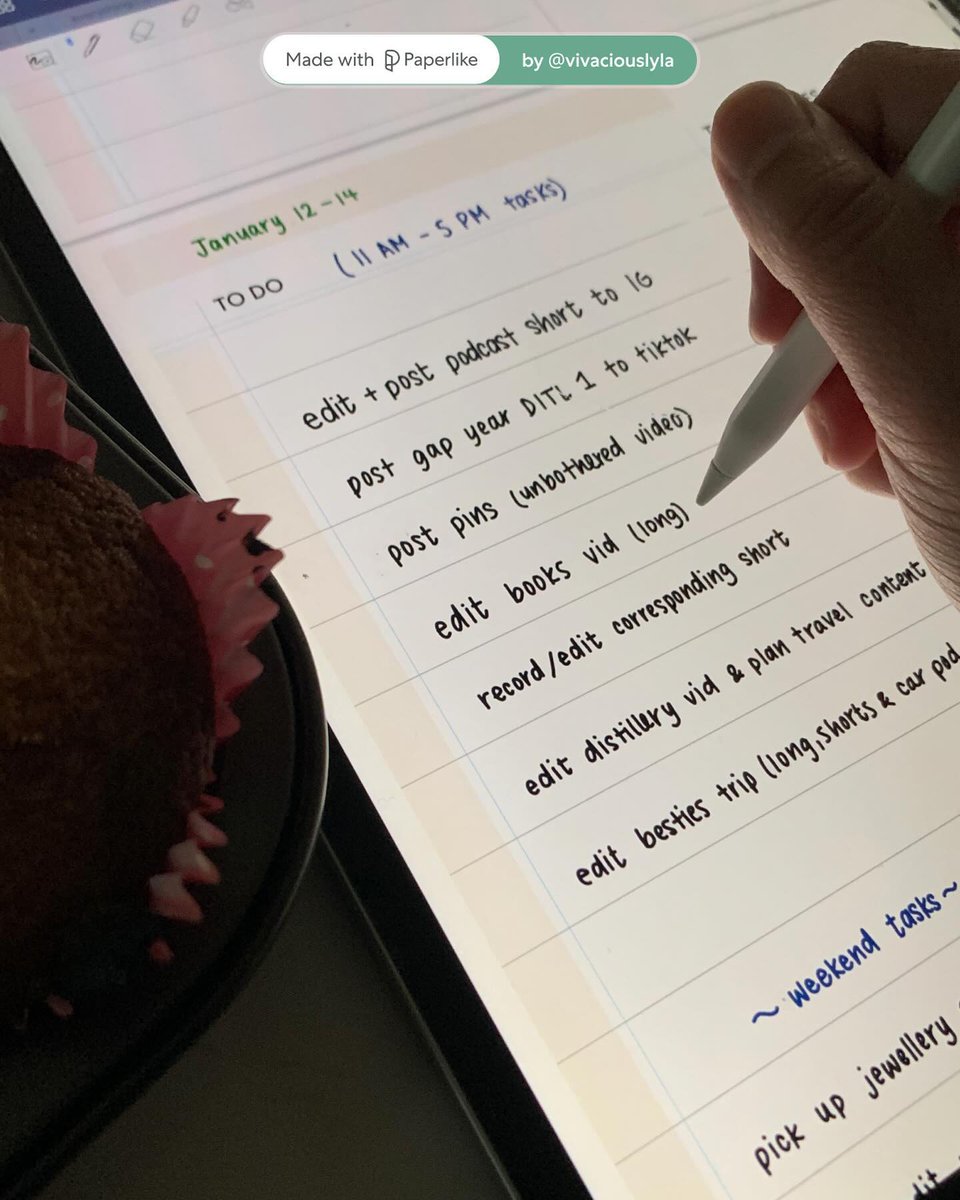 Made with Paperlike by @vivaciouslyla
January 12-14
TO DO (11 AM - 5 PM tasks)
edit + post podcast short to IG
post gap year DITL 1 to tiktok
post pins (unbothered video)
edit books vid (long)
record/edit corresponding short
edit distillery vid & plan travel content
edit besties trip (long, shorts & car pod
~ weekend tasks ~
pick up jewellery